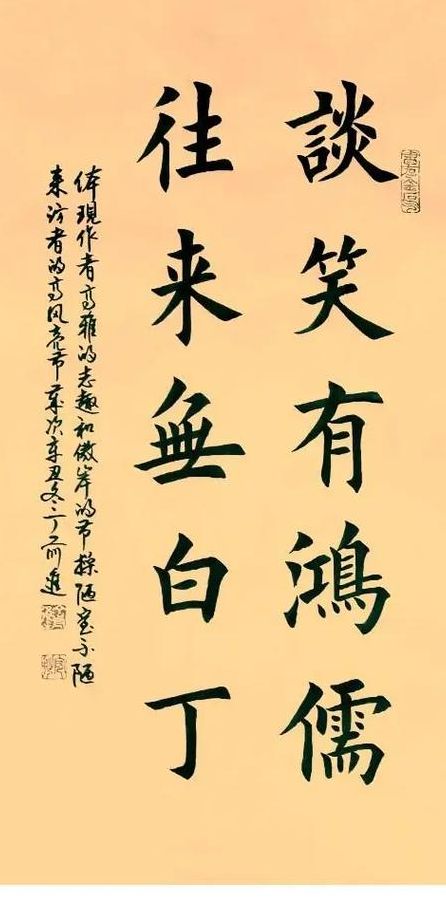 談笑有鴻儒
往来無白丁
体現作者高雅的志趣和傲岸的节操陋室不陋
来访者的高风亮节歲次辛丑冬丁前進